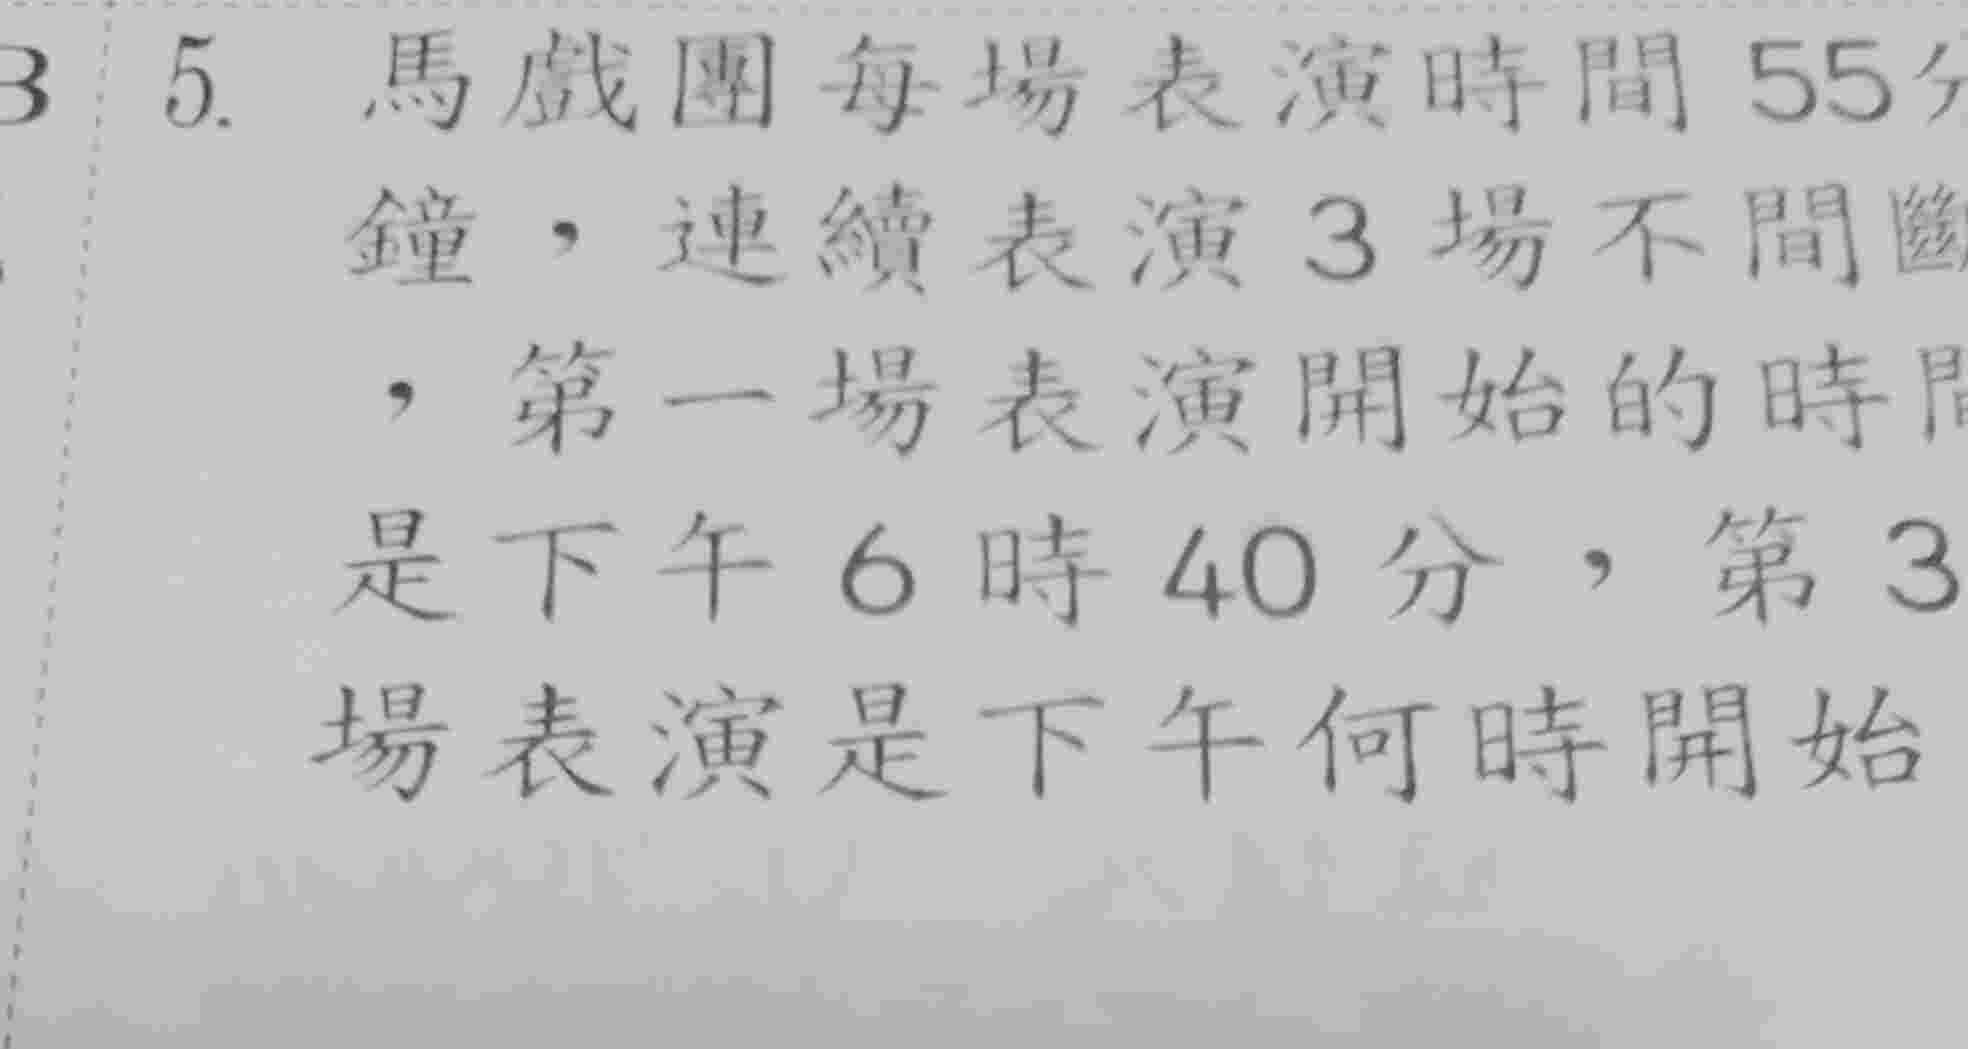 5. 馬戲團每場表演時間 55分
鐘，連續表演 3 場不間斷
，第一場表演開始的時間
是下午 6 時 40 分，第 3
場表演是下午何時開始